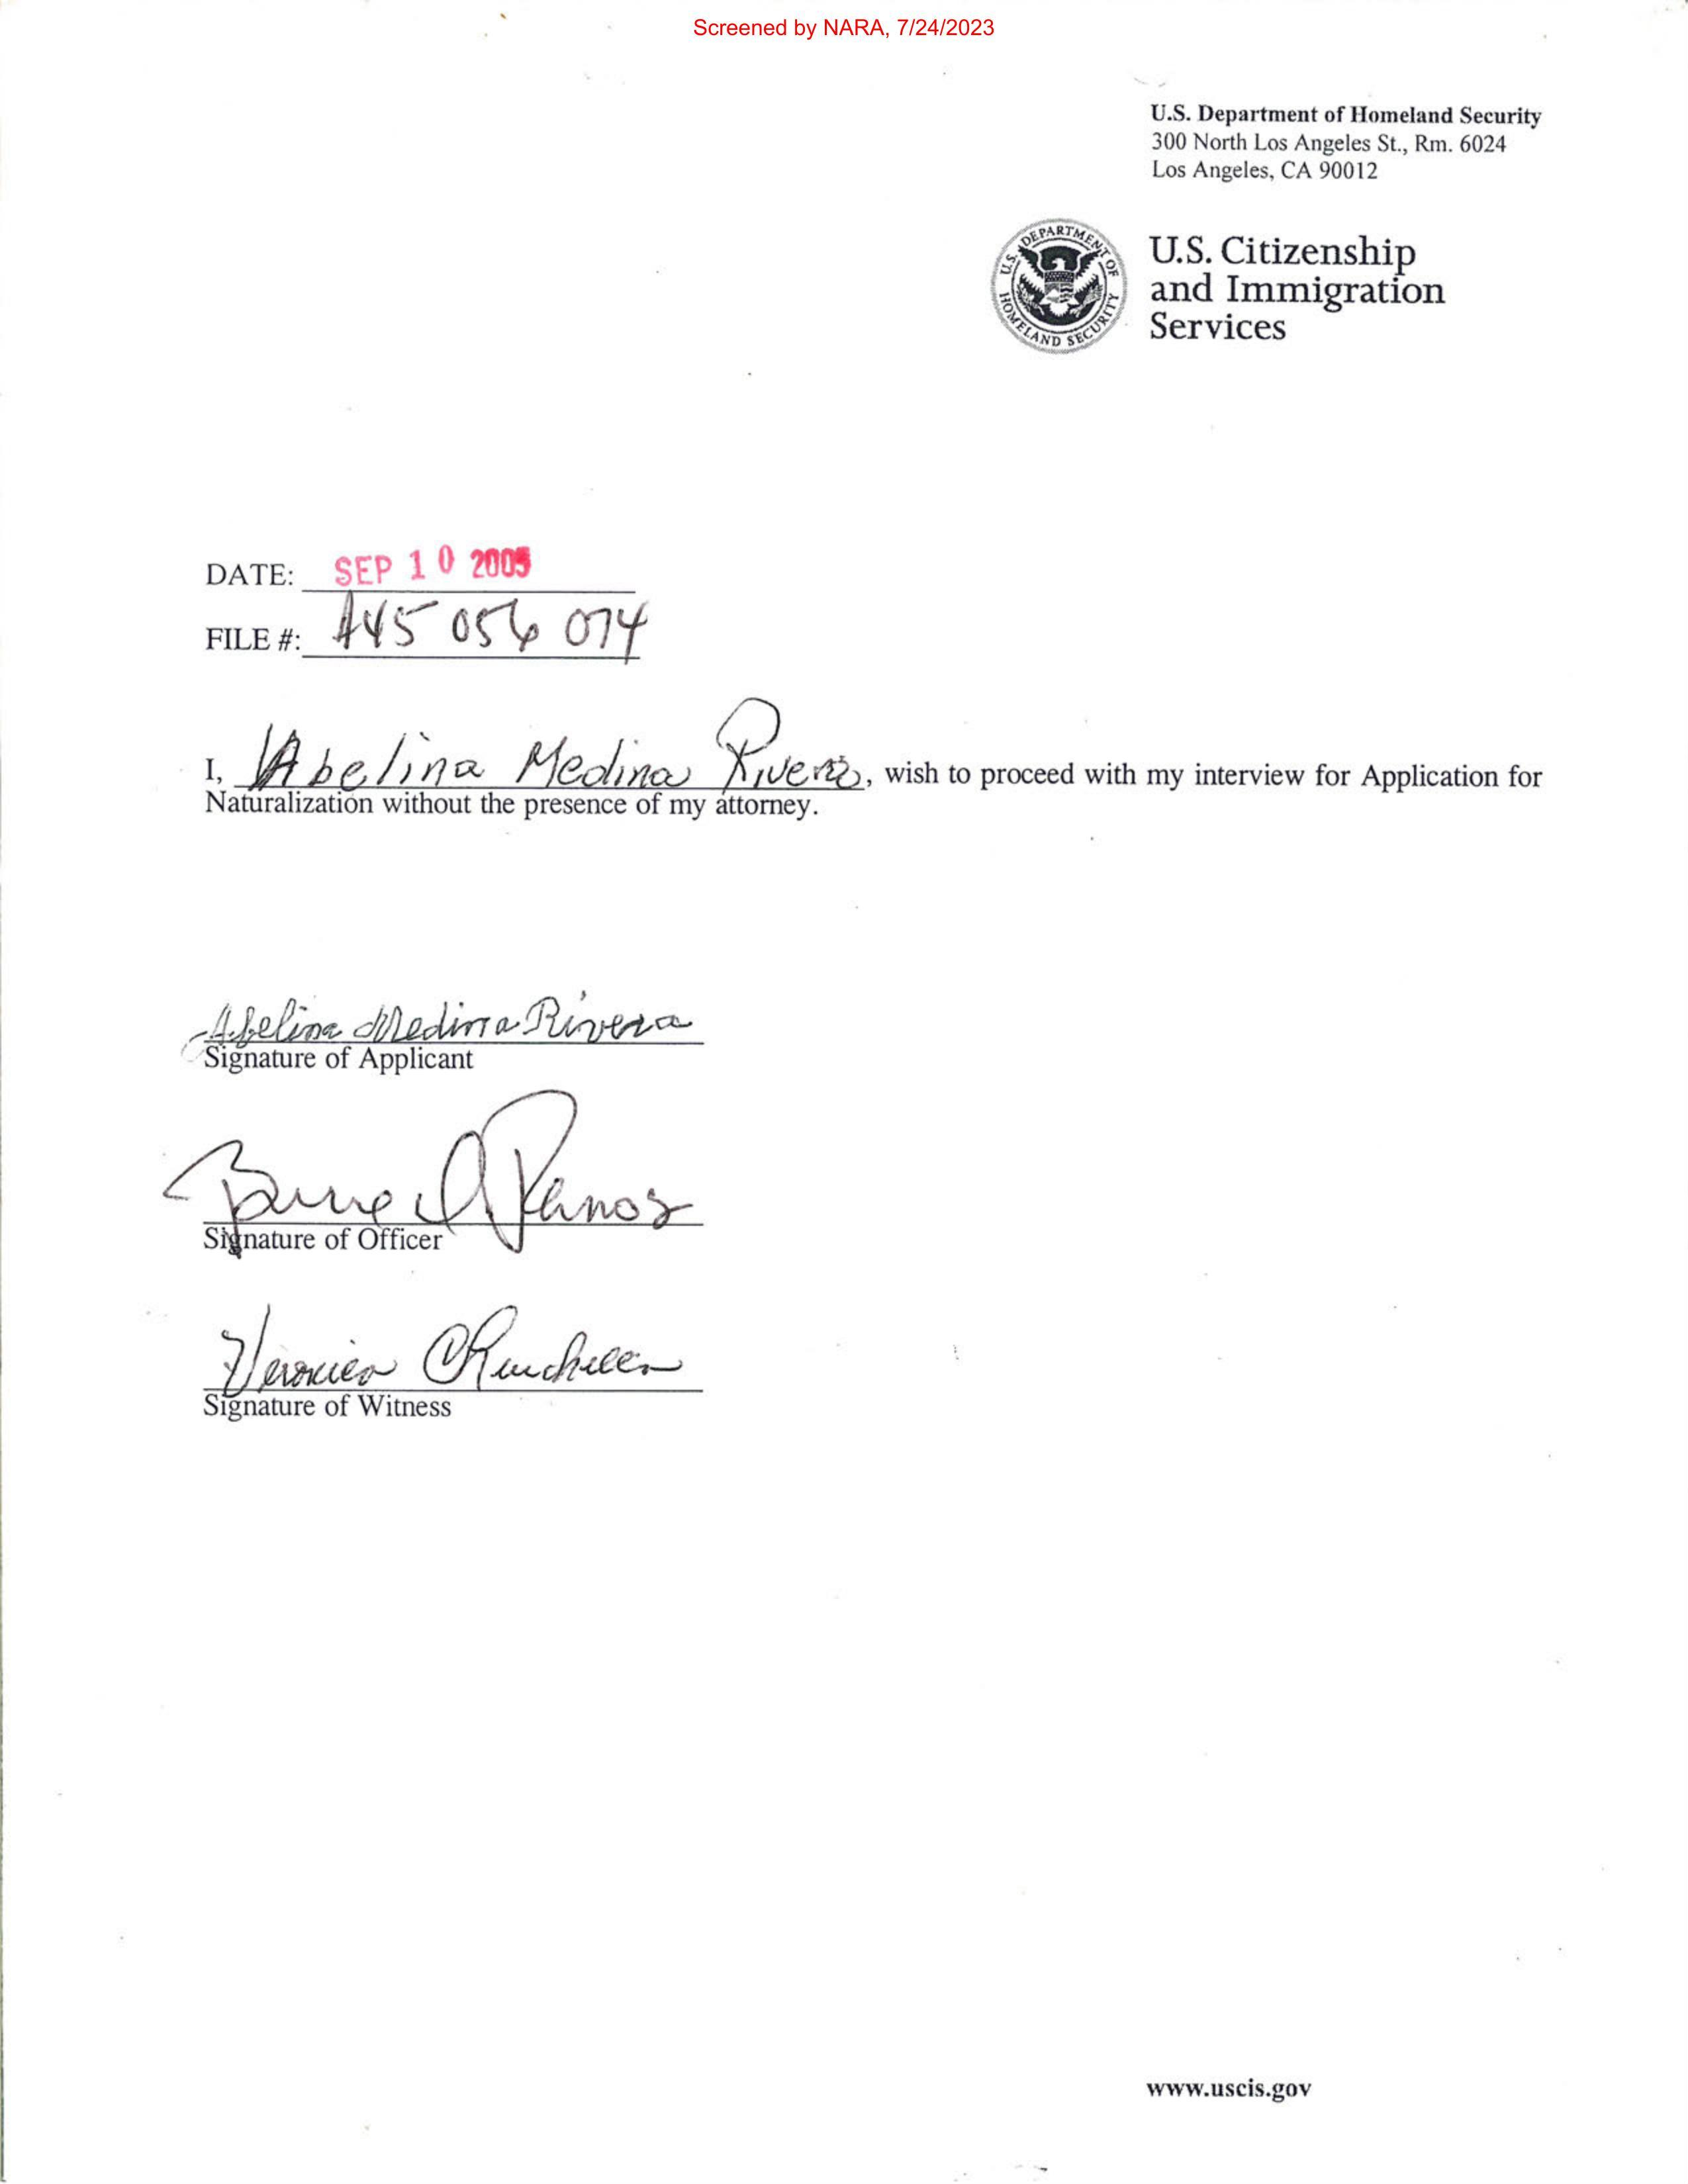 Screened by NARA, 7/24/2023
U.S. Department of Homeland Security
300 North Los Angeles St., Rm. 6024
Los Angeles, CA 90012
U.S. DEPARTMENT OF HOMELAND SECURITY
U.S. Citizenship
and Immigration
Services
DATE: SEP 10 2005
FILE #: A45 056 074
I, Abelina Medina Rivera, wish to proceed with my interview for Application for
Naturalization without the presence of my attorney.
Abelina Medina Rivera
Signature of Applicant
Signature of Officer
Signature of Witness
www.uscis.gov